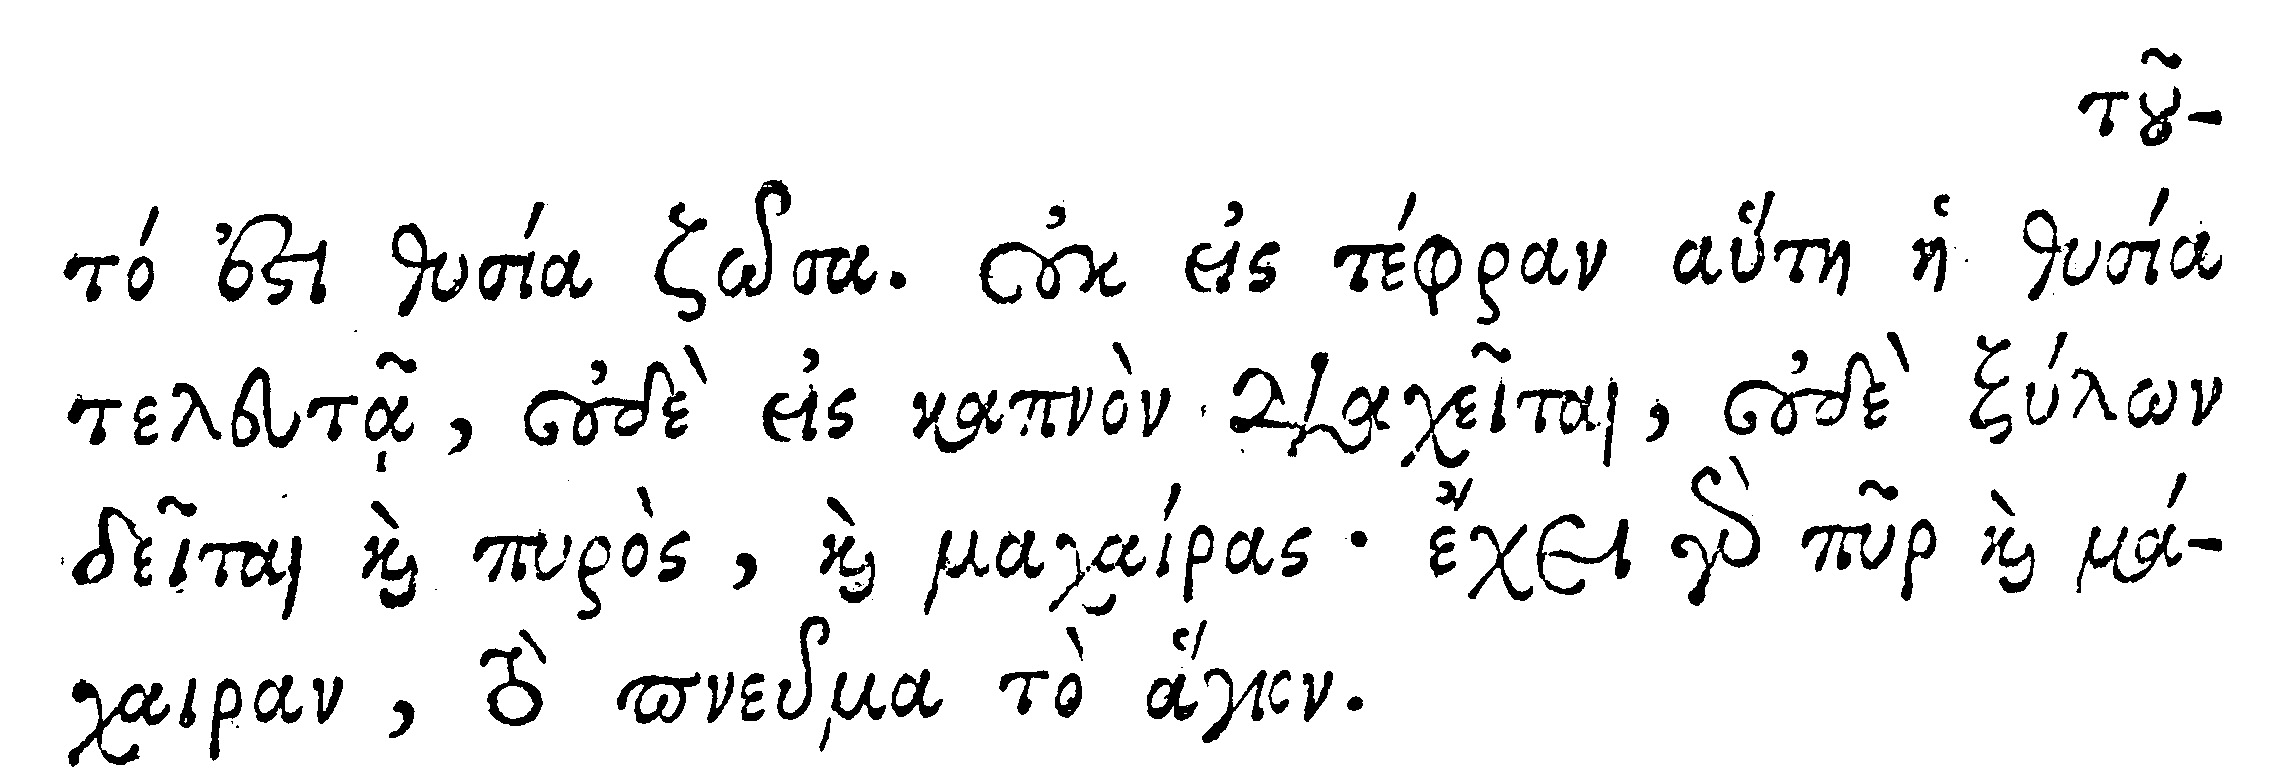 τοῦ-
τό ἐστι θυσία ζῶσα. οὐκ εἰς τέφραν αὕτη ἡ θυσία
τελευτᾷ, οὐδὲ εἰς καπνὸν διαχεῖται, οὐδὲ ξύλων
δεῖται καὶ πυρὸς, καὶ μαχαίρας· ἔχει γὰρ πῦρ καὶ μά-
χαιραν, τὸ πνεῦμα τὸ ἅγιον.